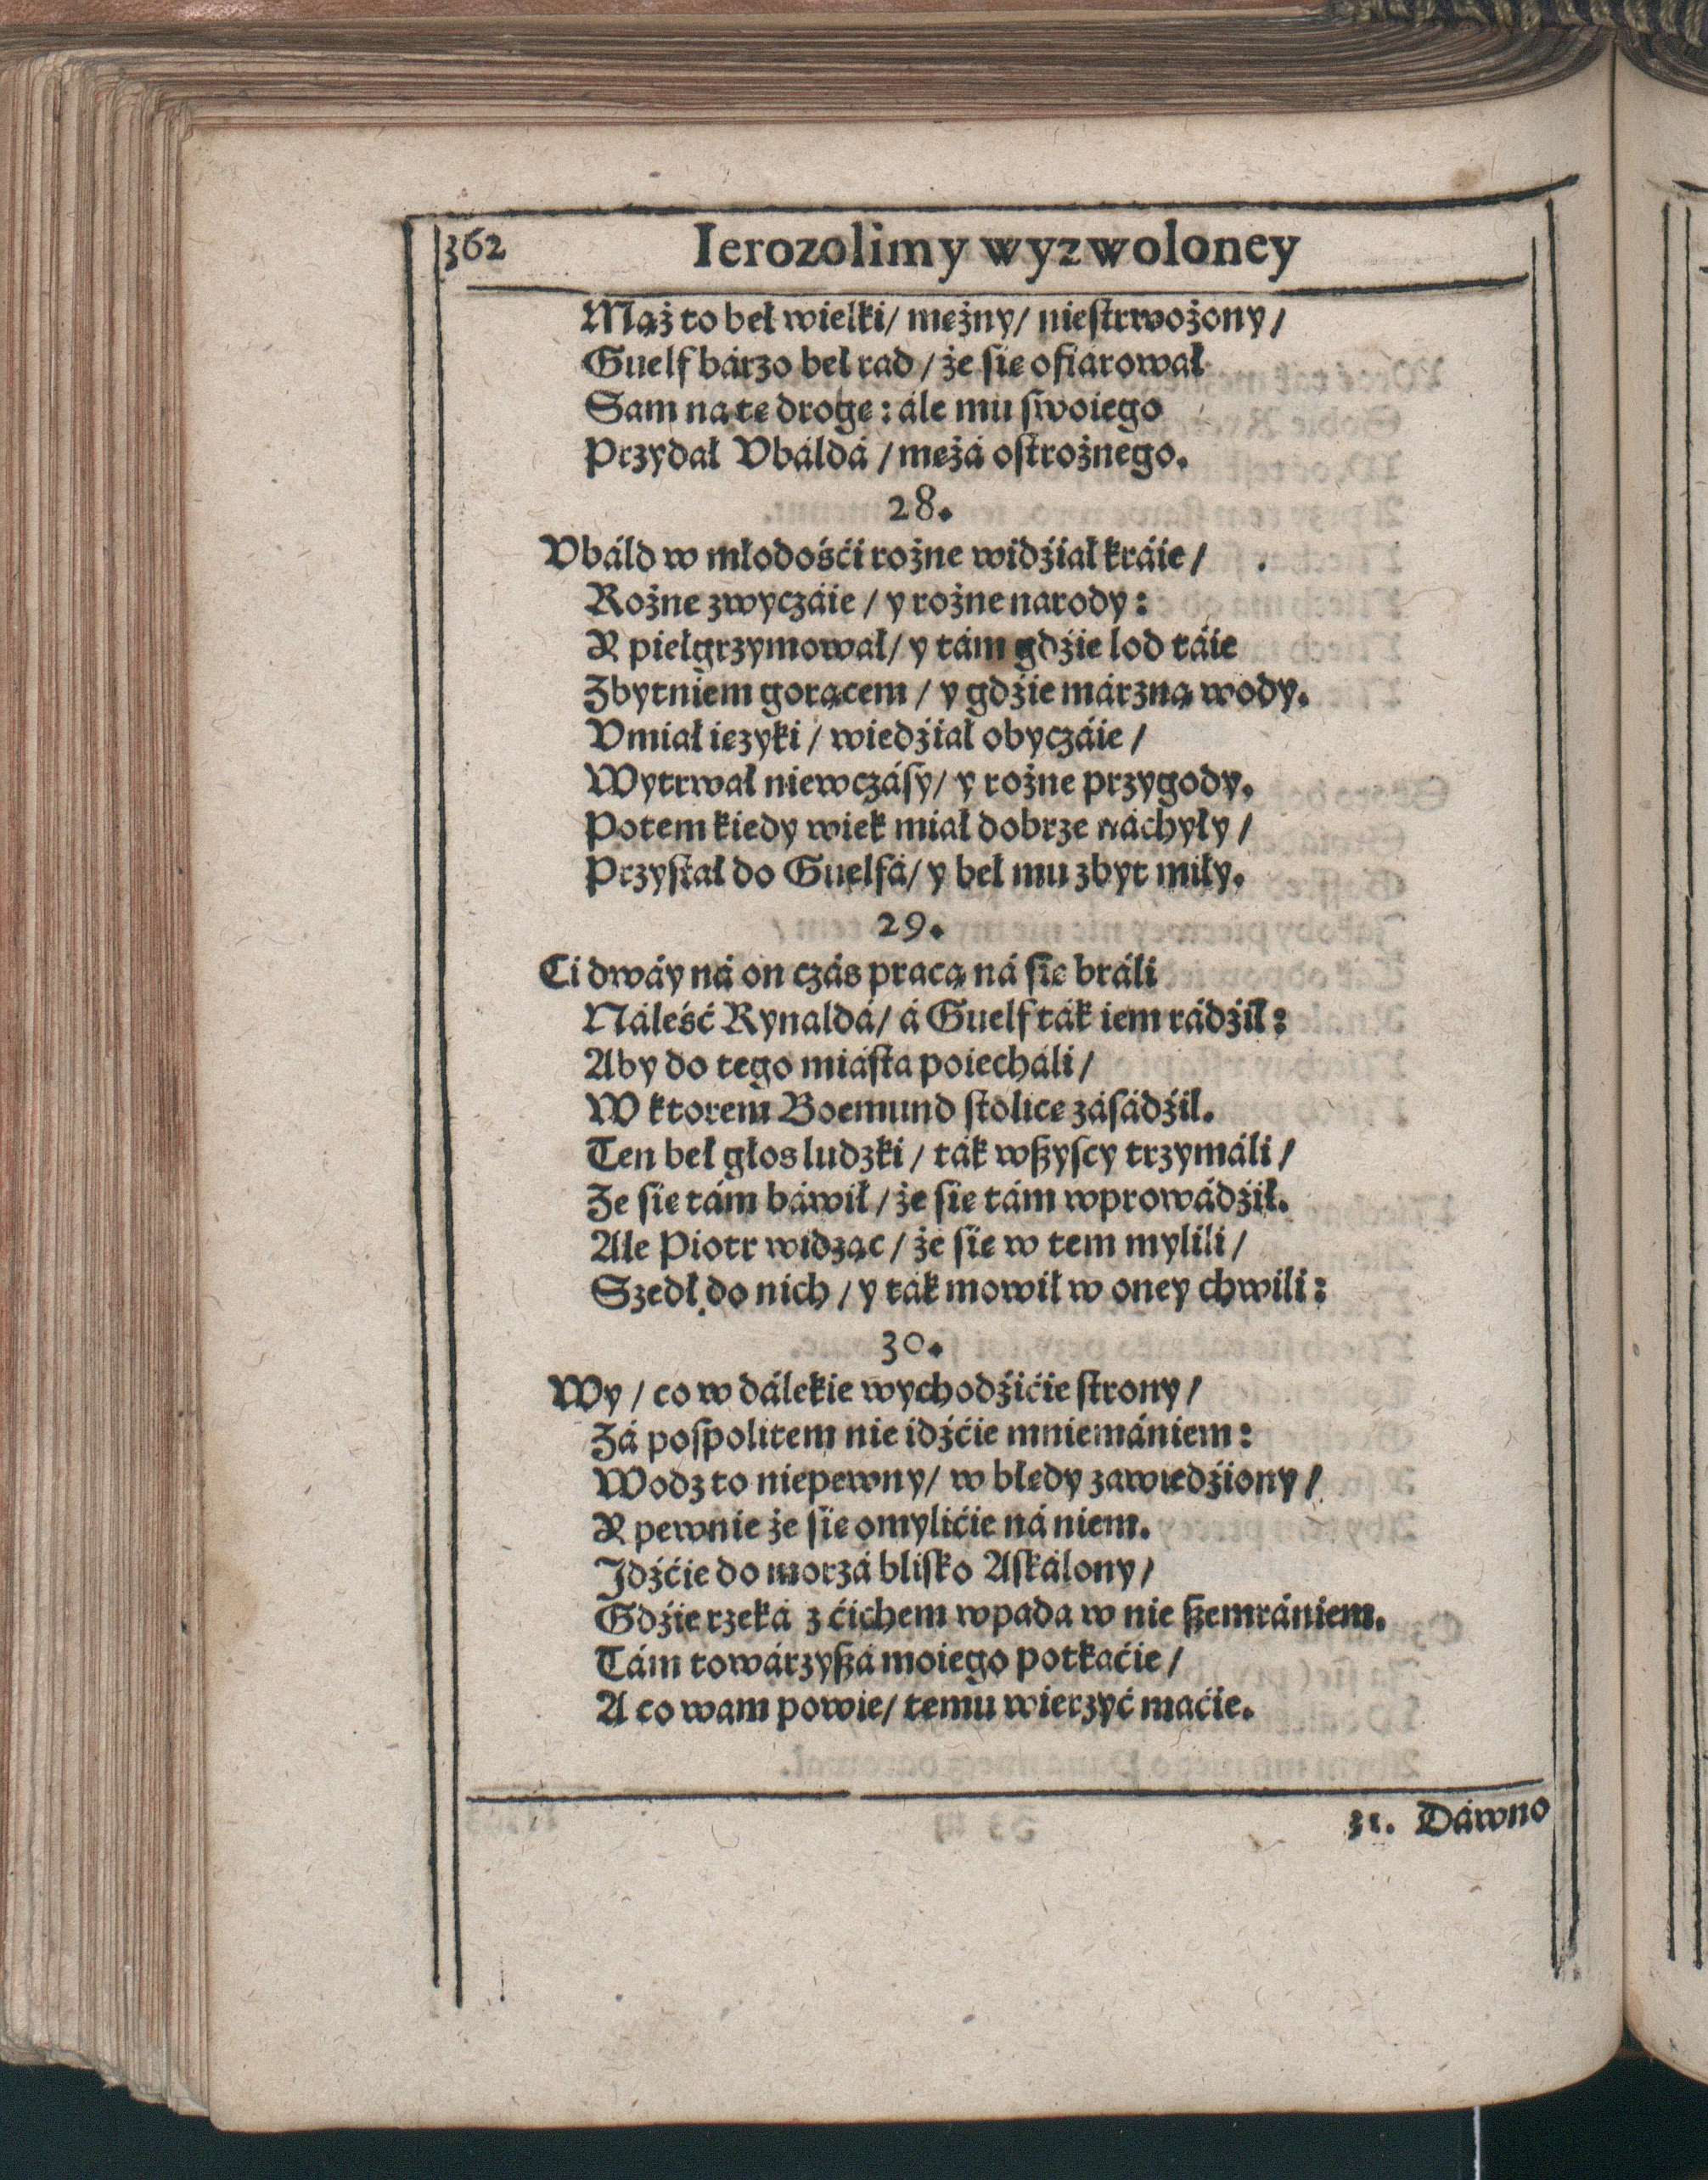 362
Ierozolimy wyzwoloney
Mąż to beł wielki/ mężny/ niestrwożony/
Guelf bárzo beł rad/ że się ofiárował
Sam na tę drogę: ále mu swoiego
Przydał Vbáldá/ mężá ostrożnego.
28.
Vbáld w młodośći rożne widźiał kráie/
Rożne zwyczáie/ y rożne narody:
Y pielgrzymował/ y tám gdźie lod táie
Zbytniem gorącem/ y gdźie márzną wody.
Vmiał ięzyki/ wiedźiał obyczáie/
Wytrwał niewczásy/ y rożne przygody.
Potem kiedy wiek miał dobrze náchyły/
Przystał do Guelfá/ y beł mu zbyt miły.
29.
Ci dwáy ná on czás pracą ná się bráli
Náleść Rynaldá/ á Guelf ták iem rádźił:
Aby do tego miástá poiecháli/
W ktorem Boemund stolicę zásádźił.
Ten beł głos ludzki/ ták wszyscy trzymáli/
Że się tám báwił/ że się tám wprowádźił.
Ale Piotr widząc/ że się w tem mylili/
Szedł do nich/ y ták mowił w oney chwili:
30.
Wy/ co w dálekie wychodźićie strony/
Zá pospolitem nie idźćie mniemániem:
Wodz to niepewny/ w błędy zawiedźiony/
Y pewnie że się omylićie ná niem.
Jdźćie do morzá blisko Askálony/
Gdźie rzeká z ćichem wpada w nie szemrániem.
Tám towárzyszá moiego potkaćie/
A co wam powie/ temu wierzyć maćie.
31. Dáwno